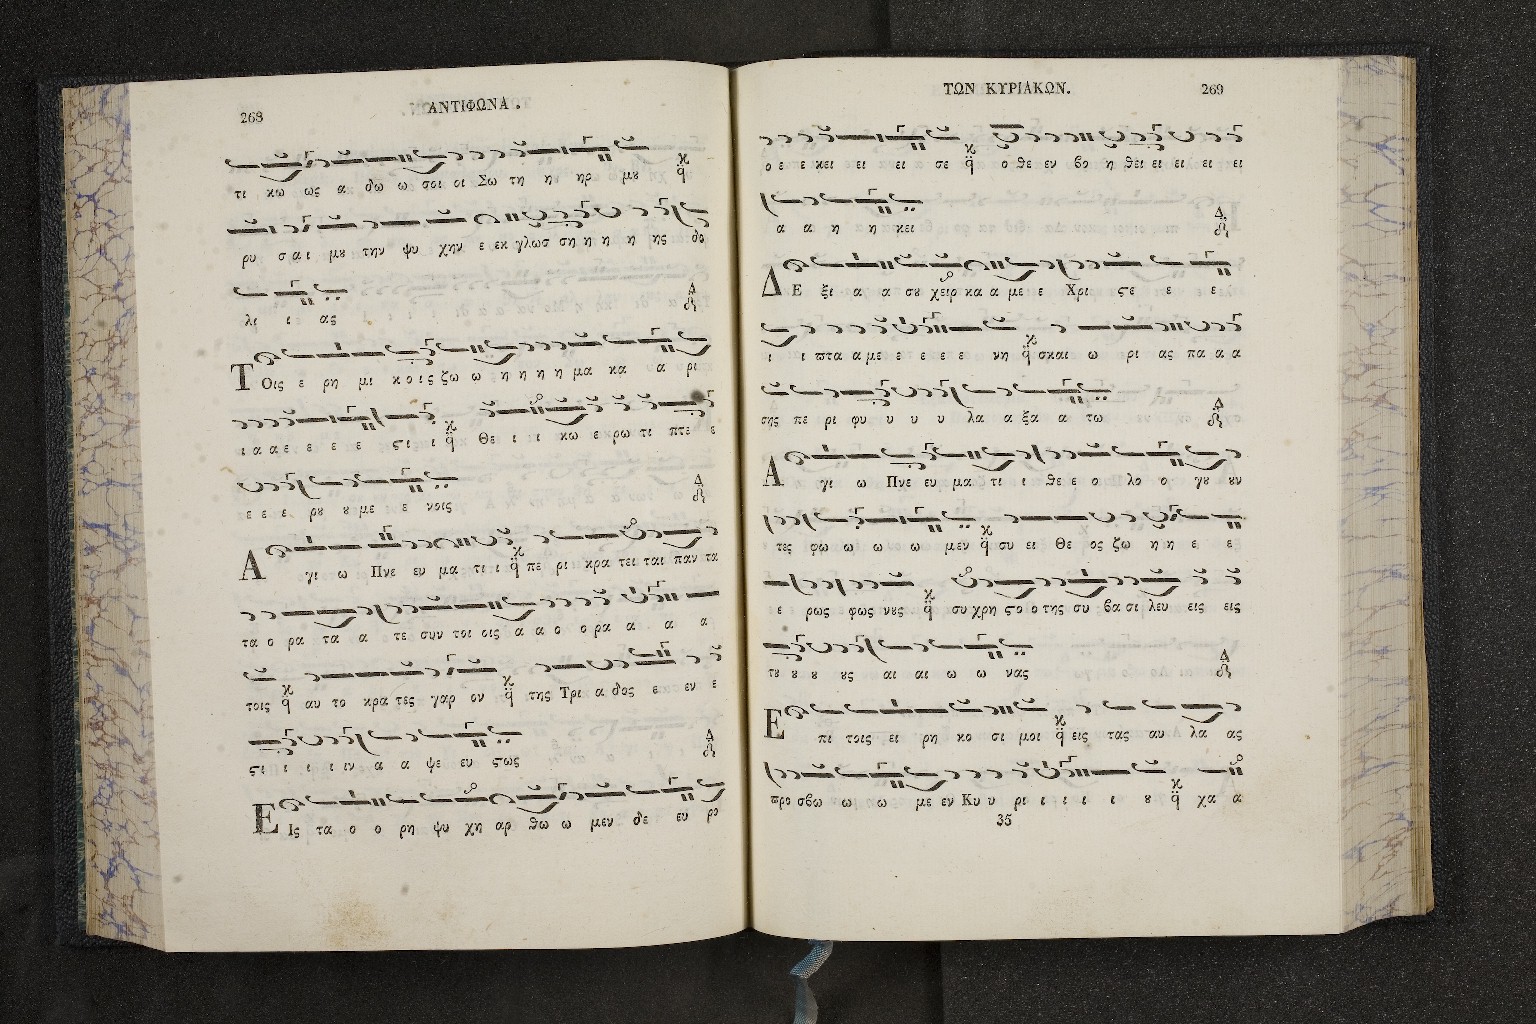 268
ΑΝΤΙΦΩΝΑ.
τι κω ως α δω ω σοι οι Σω τη η ηρ μȣ
ρυ σαι μȣ την ψυ χην ε εκ γλωσ ση η η η ης δο
λι ι ας
ΤΟις ε ρη μι κοις ζω ω η η η η μα κα α ρι
ι α α ε ε ε ε ϛι ι Θε ι ι κω ε ρω τι πτε ε
ε ε ε ρȣ ȣ με ε νοις
Α γι ω Πνε ευ μα τι ι πε ρι κρα τει ται παν τα
τα ο ρα τα α τε συν τοι οις α α ο ο ρα α α α
τοις αυ το κρα τες γαρ ον της Τρι α δος ε εν ε
ϛι ι ι ι ιν α α ψε ευ ϛως
ΕΙς τα ο ο ρη ψυ χη αρ θω ω μεν δε ευ ρο
ΤΩΝ ΚΥΡΙΑΚΩΝ.
269
ο ε ε κει ει ει σε ο θε εν βο η θει ει ει ει ει
α α η η κει
ΔΕ ξι α α σȣ χειρ κα α με ε Χρι ϛε ε ε
ι ι ϖτα α με ε ε ε ε νη σκαι ω ρι ας πα α α
σης πε ρι φυ υ υ υ λα α ξα α τω
Α γι ω Πνε ευ μα τι ι θε ε ο λο ο γȣ ȣν
τες φω ω ω ω μεν συ ει Θε ος ζω η η ε ε
ε ρως φως νȣς συ χρη ϛο ο της συ βα σι λευ εις εις
τȣ ȣ ȣ ȣς αι αι ω ω νας
Ε πι τοις ει ρη κο σι μοι εις τας αυ λα ας
προ σβω ω ω με εν Κυ υ ρι ι ι ι ι ȣ χα α
35